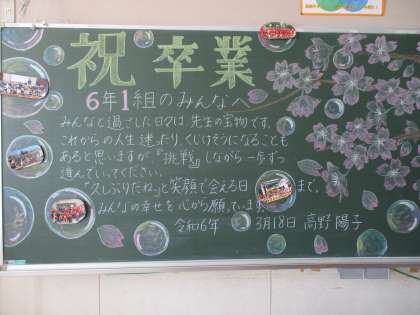 祝 卒業
6年1組のみんなへ
みんなと過ごした日々は、先生の宝物です。
これからの人生、迷ったり、くじけそうになることも
あると思いますが『挑戦』しながら一歩ずつ
進んでいってください。
「久しぶりだね。」と笑顔で会える日まで。
みんなの幸せを心から願っています。
令和6年 3月18日 高野 陽子